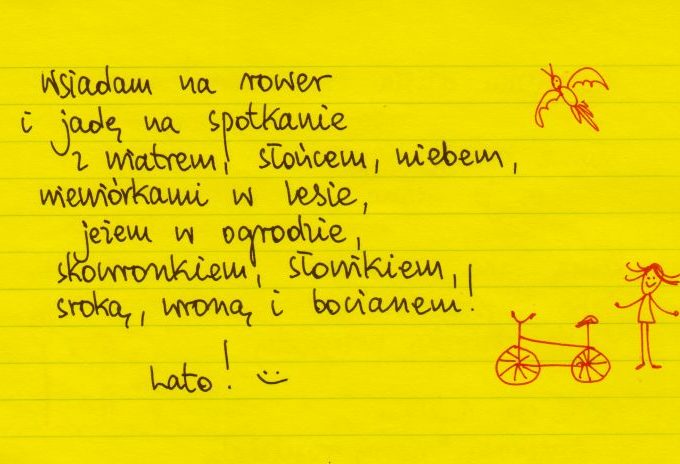 Wsiadam na rower
i jadę na spotkanie
z wiatrem, słońcem, niebem,
wiewiórkami w lesie,
jeżem w ogrodzie,
skowronkiem, słowikiem,
sroką, wroną i bocianem!
Lato! :)